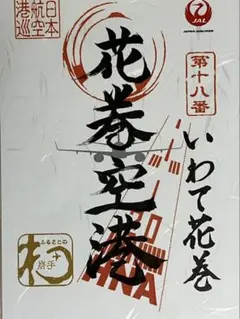 日本
航空
港巡
JAL
JAPAN AIRLINES
第十八番
花巻空港
いわて花巻
HNA
ふるさとの
岩手